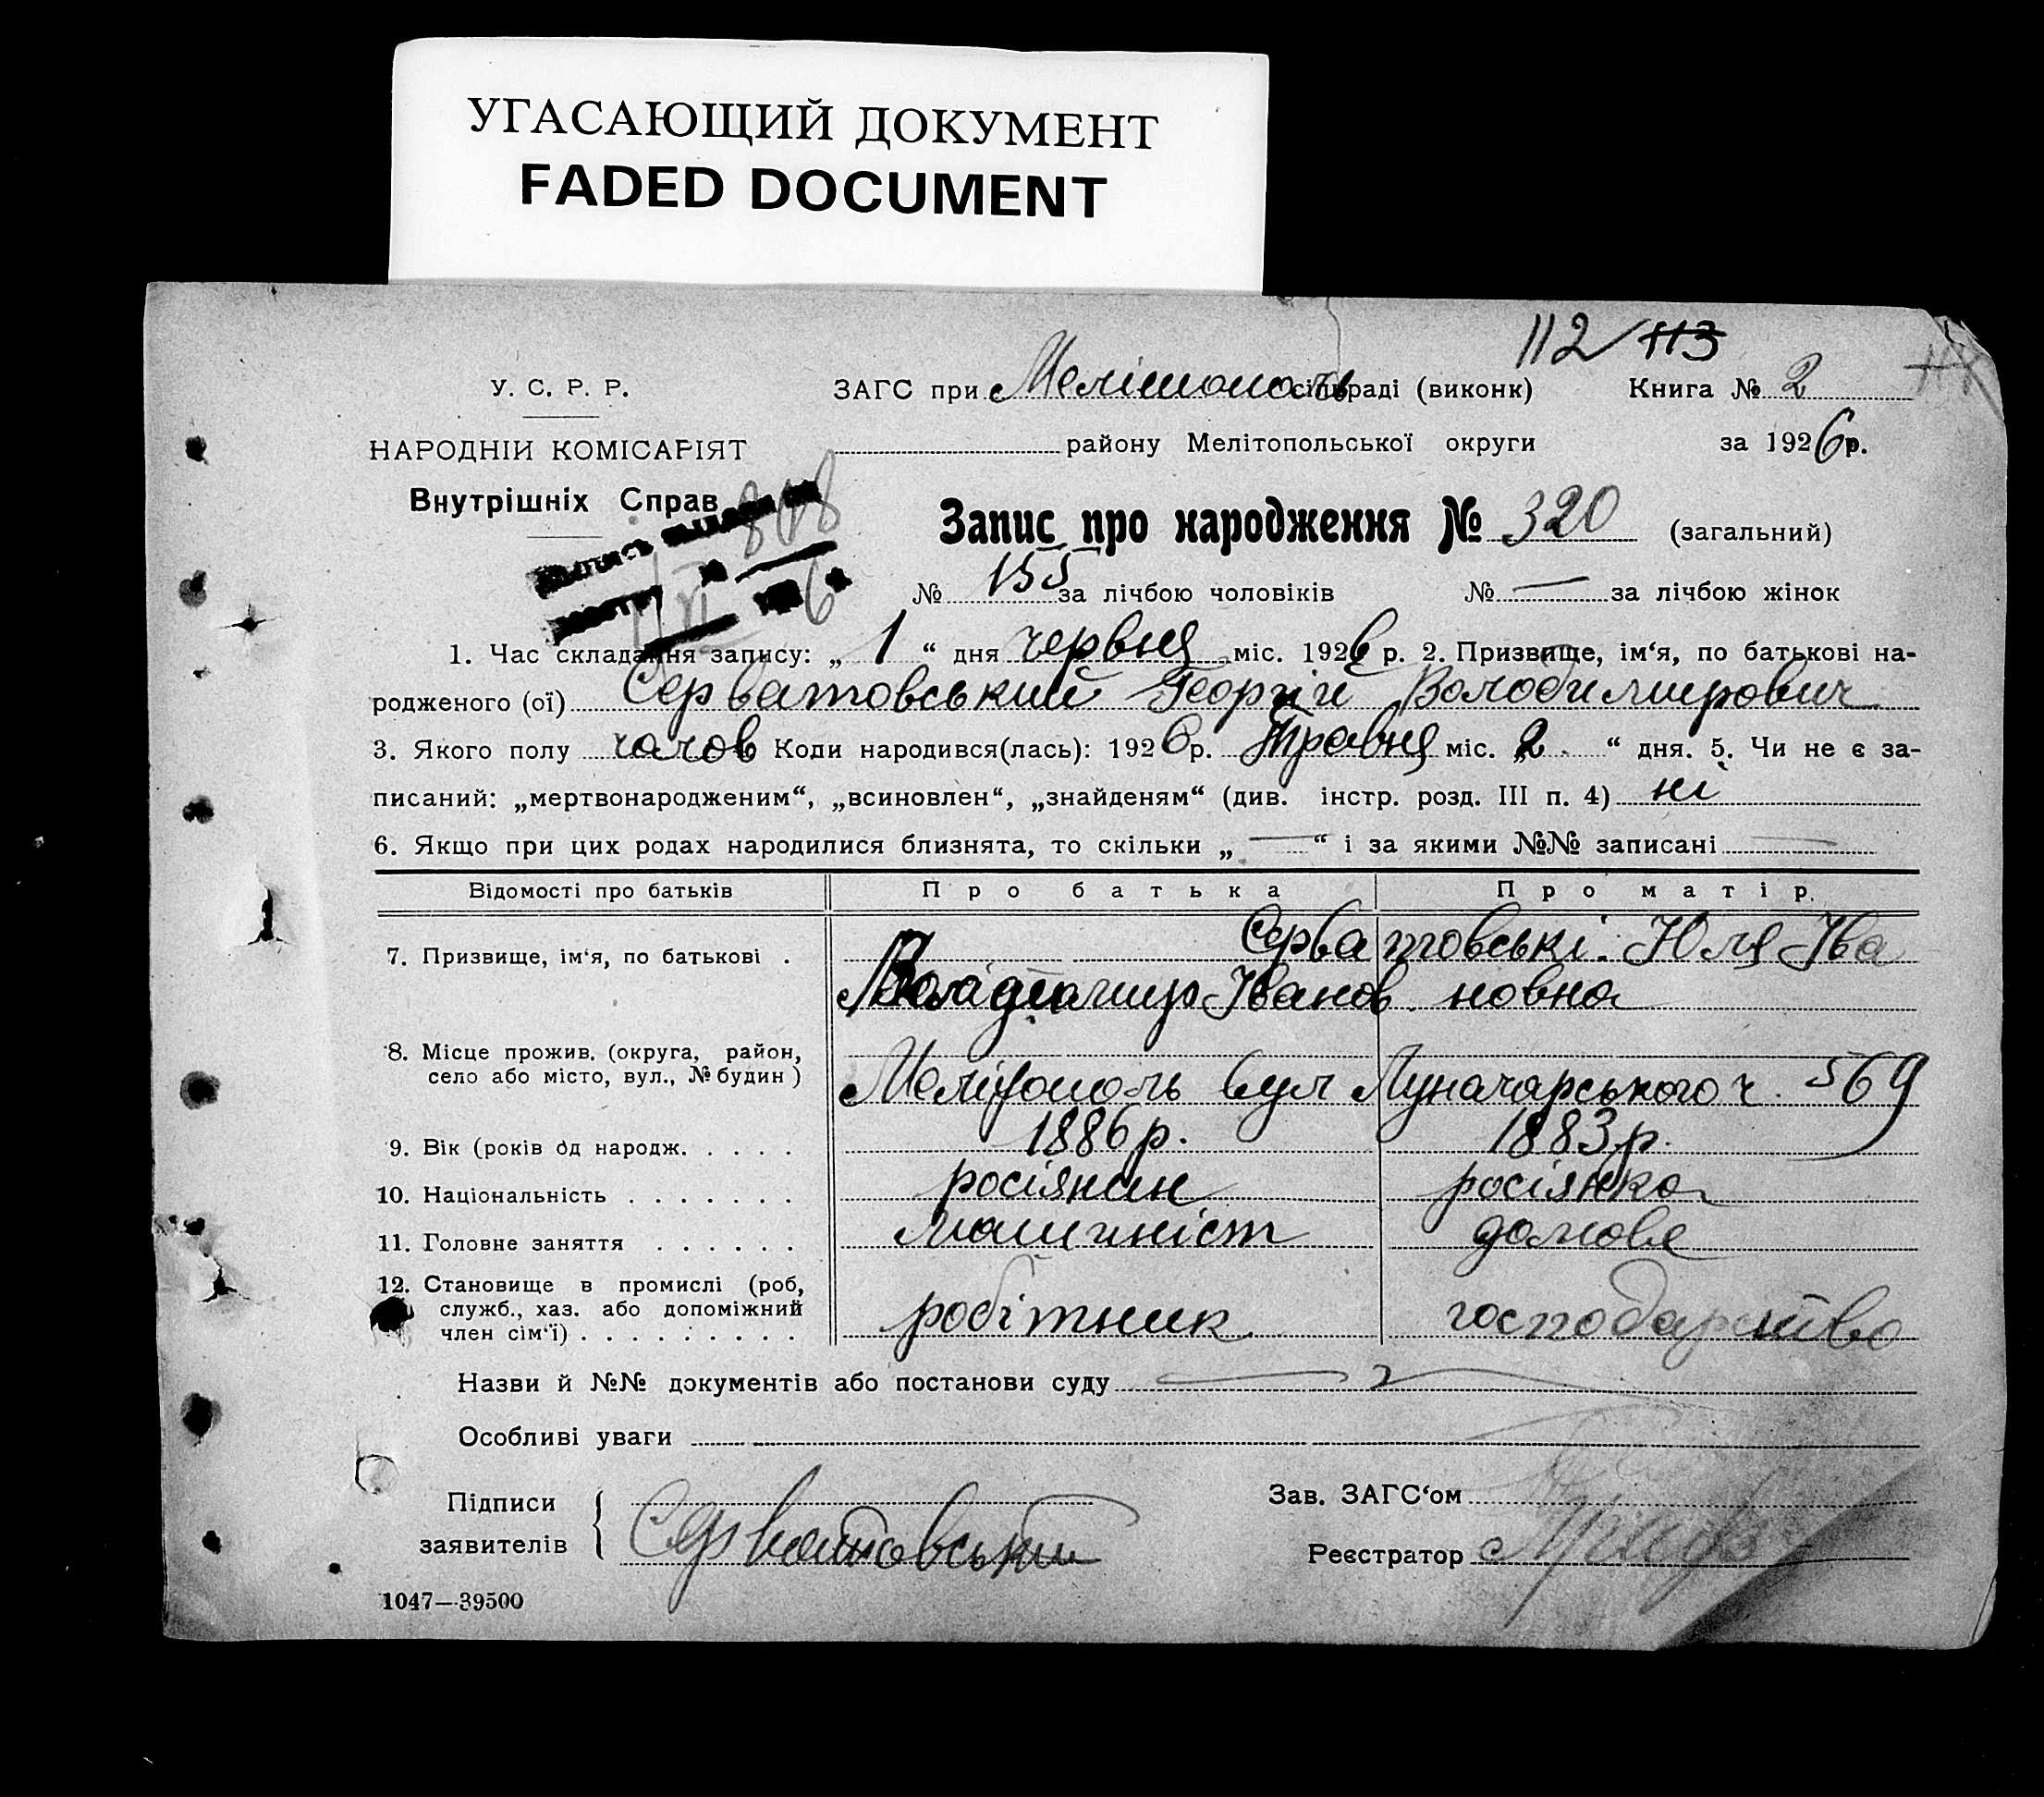 УГАСАЮЩИЙ ДОКУМЕНТ
FADED DOCUMENT
112/113
У. С. Р. Р.
ЗАГС при Мелітополь сільраді (виконк) Книга № 2
НАРОДНІИ КОМІСАРІЯТ
району Мелітопольської округи за 1926 р.
Внутрішніх Справ
808
Запис про народження № 320 (загальний)
№ 155 за лічбою чоловіків № — за лічбою жінок
1. Час складання запису: „ 1 “ дня червня міс. 1926 р. 2. Призвище, ім‘я, по батькові на-
родженого (ої) Серватовський Георгій Володимирович
3. Якого полу чолов Коли народився(лась): 1926 р. Травня міс. „2 “ дня. 5. Чи не є за-
писаний: „мертвонародженим“, „всиновлен“, „знайденям“ (див. інстр. розд. III п. 4) ні
6. Якщо при цих родах народилися близнята, то скільки „ — “ і за якими №№ записані —
Відомості про батьків Про батька Про матір.
7. Призвище, ім‘я, по батькові . Серватовські. Юля Іва
Іванов. новна
8. Місце прожив. (округа, район,
село або місто, вул., № будин) Мелітополь вул Луначарського ч. 569
9. Вік (років од народж. . . . . 1886 р. 1883 р.
10. Національність . . . . . . . росіянин росіянка
11. Головне заняття . . . . . . машиніст домове
12. Становище в промислі (роб,
служб., хаз. або допоміжний
член сім‘ї) . . . . . . . . . робітник господарство
Назви й №№ документів або постанови суду
Особливі уваги
Підписи
заявителів
Серватовський
Зав. ЗАГС‘ом
Реєстратор
1047—39500